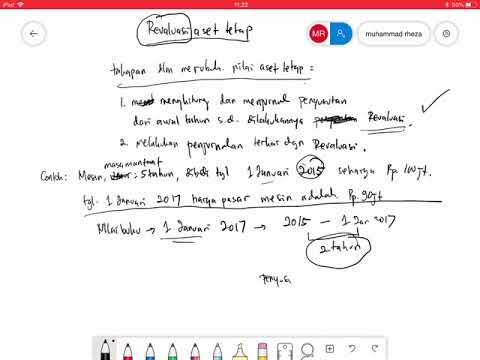 iPad 11.22 50%
Revaluasi aset tetap
MR muhammad rheza
tahapan dlm merubah nilai aset tetap =
1. menghitung dan menjurnal penyusutan
dari awal tahun s.d. dilakukannya Revaluasi.
2. melakukan penjurnalan terkait dgn Revaluasi.
masa manfaat
Contoh: Mesin, = 5 tahun, dibeli tgl 1 Januari 2015 seharga Rp. 100jt.
tgl. 1 Januari 2017 harga pasar mesin adalah Rp. 90jt
Nilai buku → 1 Januari 2017 → 2015 – 1 Jan 2017
2 tahun
Penyus